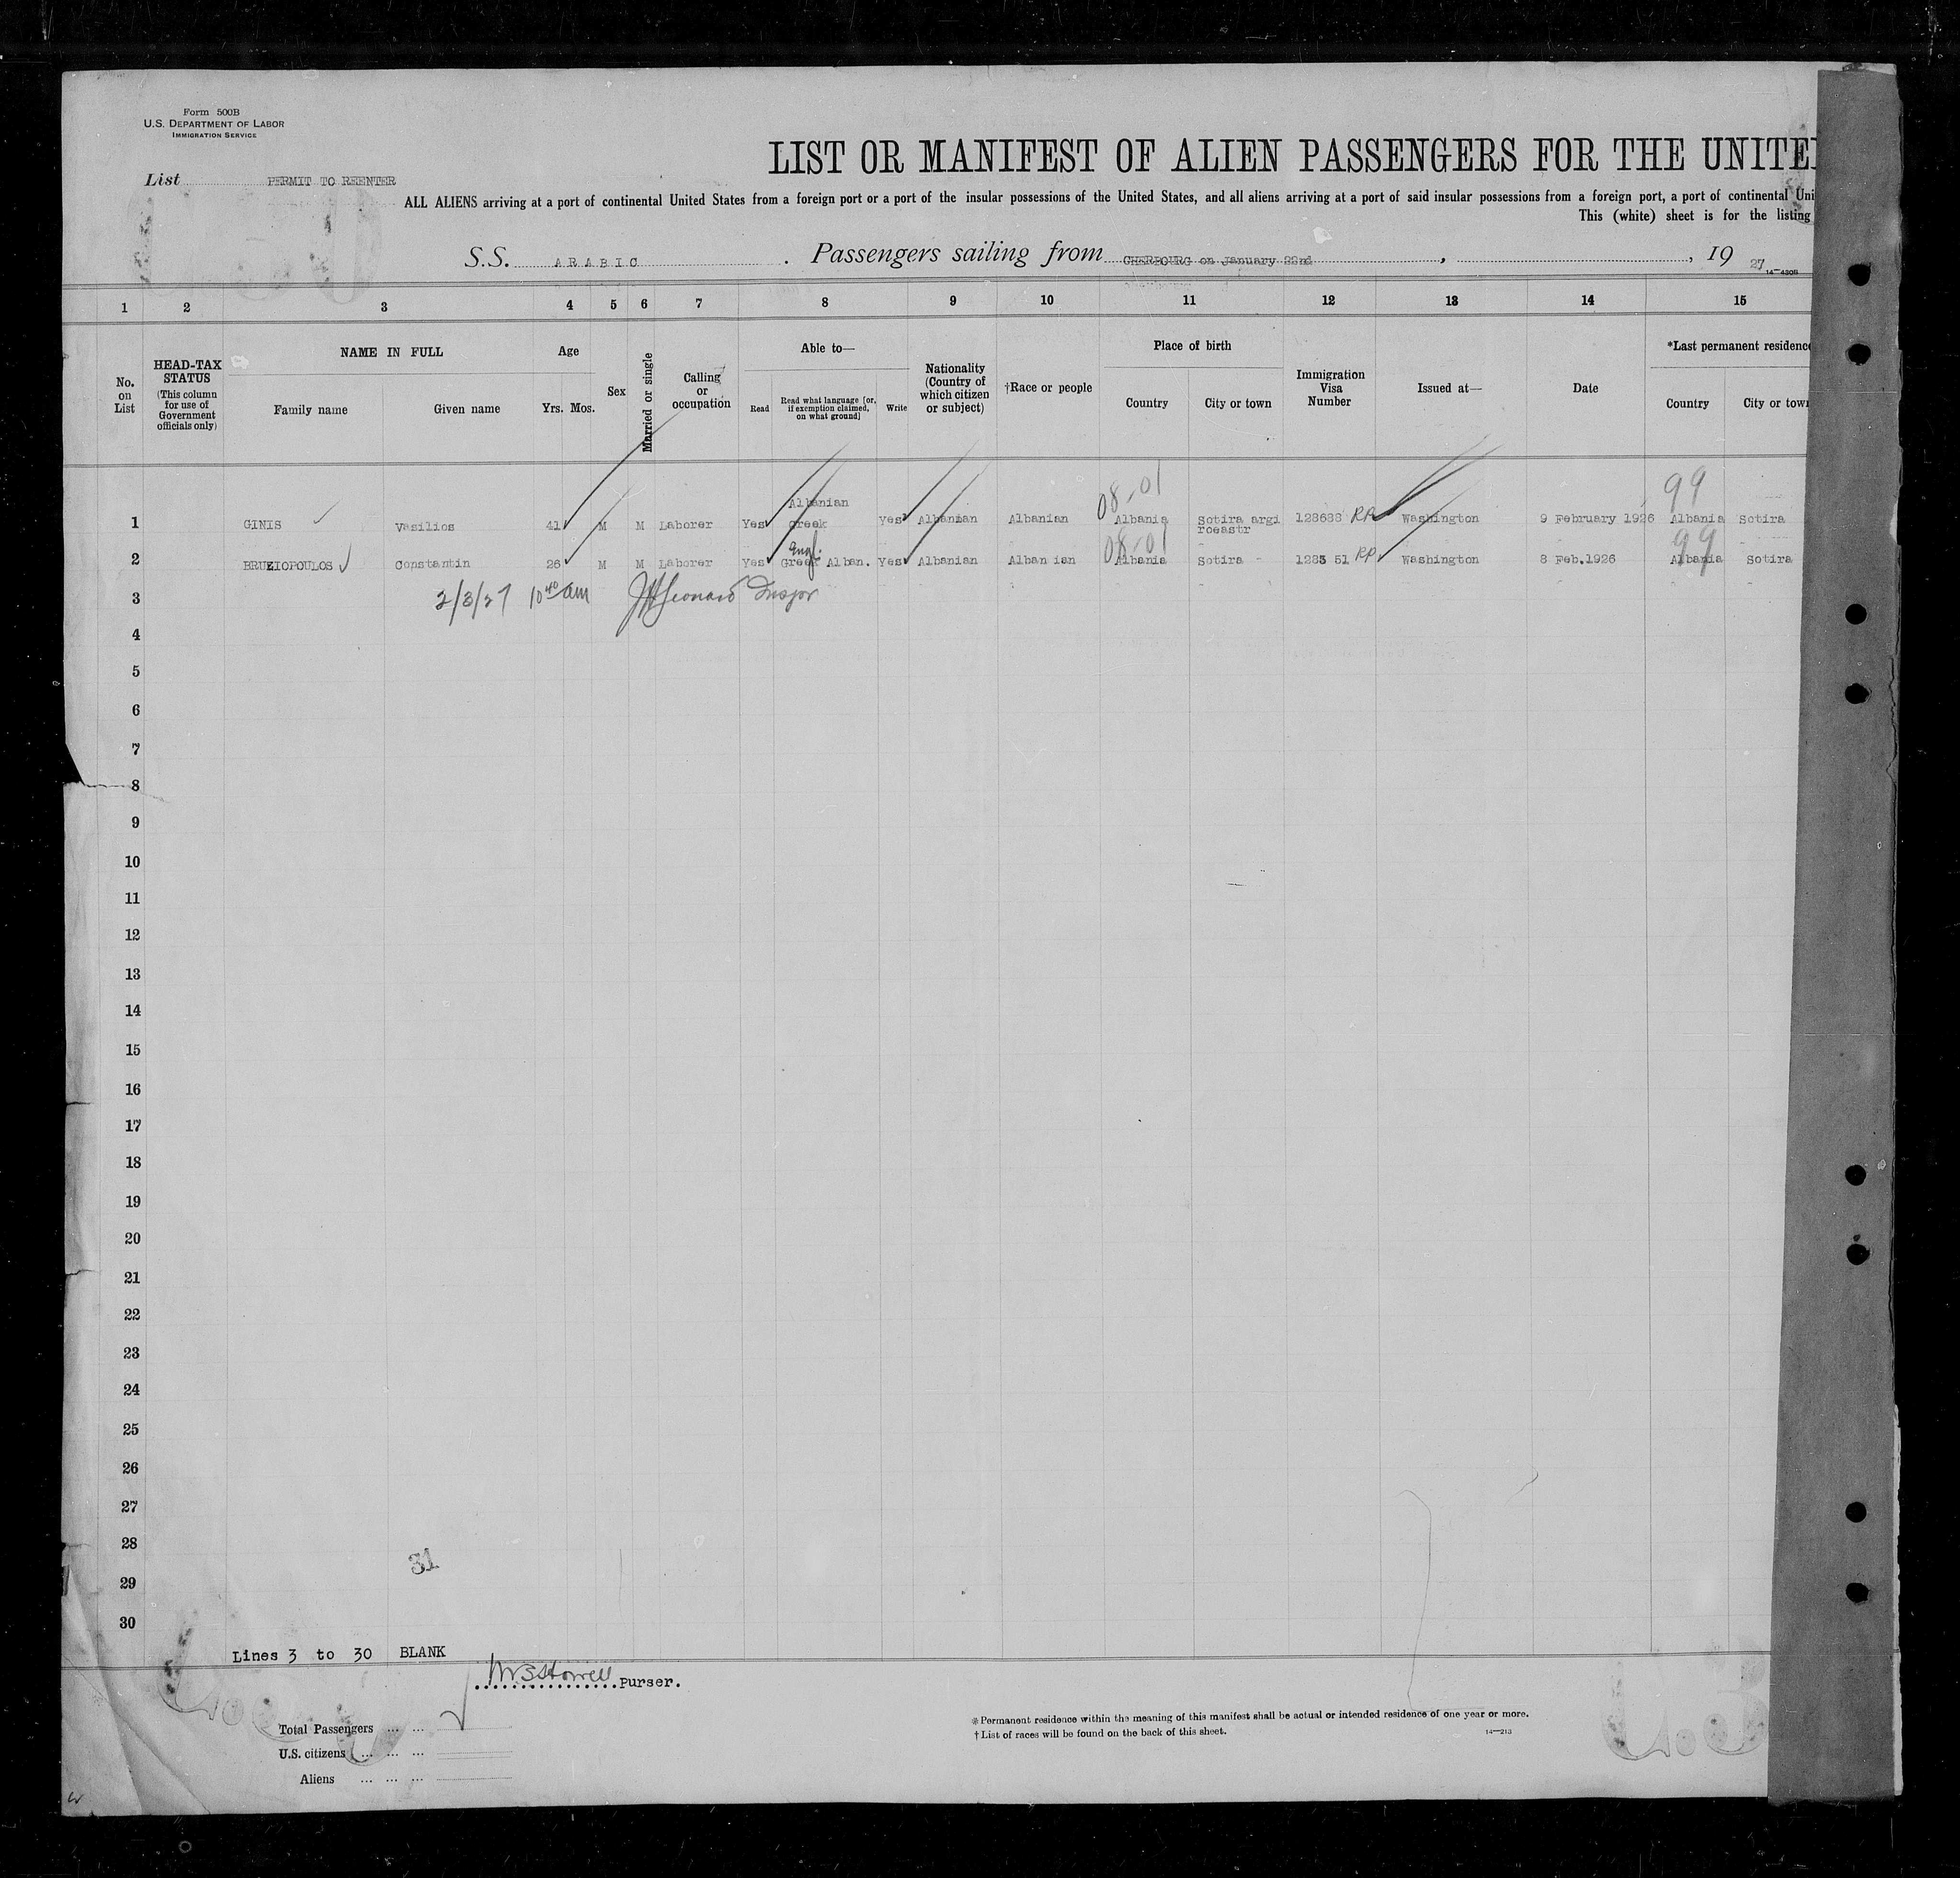 Form 500B
U.S. DEPARTMENT OF LABOR
IMMIGRATION SERVICE
List PERMIT TO REENTER
LIST OR MANIFEST OF ALIEN PASSENGERS FOR THE UNITE
ALL ALIENS arriving at a port of continental United States from a foreign port or a port of the insular possessions of the United States, and all aliens arriving at a port of said insular possessions from a foreign port, a port of continental Uni
This (white) sheet is for the listing
S.S. ARABIC . Passengers sailing from CHERBOURG on January 22nd , , 19 27
1 2 3 4 5 6 7 8 9 10 11 12 13 14 15
No. on List
HEAD-TAX STATUS (This column for use of Government officials only)
NAME IN FULL
Family name Given name
Age
Yrs. Mos.
Sex
Married or single
Calling or occupation
Able to—
Read
Read what language [or, if exemption claimed, on what ground]
Write
Nationality (Country of which citizen or subject)
†Race or people
Place of birth
Country City or town
Immigration Visa Number
Issued at—
Date
*Last permanent residence
Country City or town
08-01 99
Albanian
1 GINIS Vasilios 41 M M Laborer Yes Greek Yes Albanian Albanian Albania Sotira argi 128688 RP Washington 9 February 1926 Albania Sotira
rocastr
Engl. 08-01 99
2 BRUZIOPOULOS Constantin 26 M M Laborer Yes Greek Alban. Yes Albanian Alban ian Albania Sotira - 1283 51 RP Washington 8 Feb.1926 Albania Sotira
3 2/3/27 10 40 am JH Leonard Inspor
4
5
6
7
8
9
10
11
12
13
14
15
16
17
18
19
20
21
22
23
24
25
26
27
28
31
29
30
Lines 3 to 30 BLANK
Purser.
Total Passengers ... ...
U.S. citizens ... ... ...
Aliens ... ... ...
*Permanent residence within the meaning of this manifest shall be actual or intended residence of one year or more.
†List of races will be found on the back of this sheet.
14—213